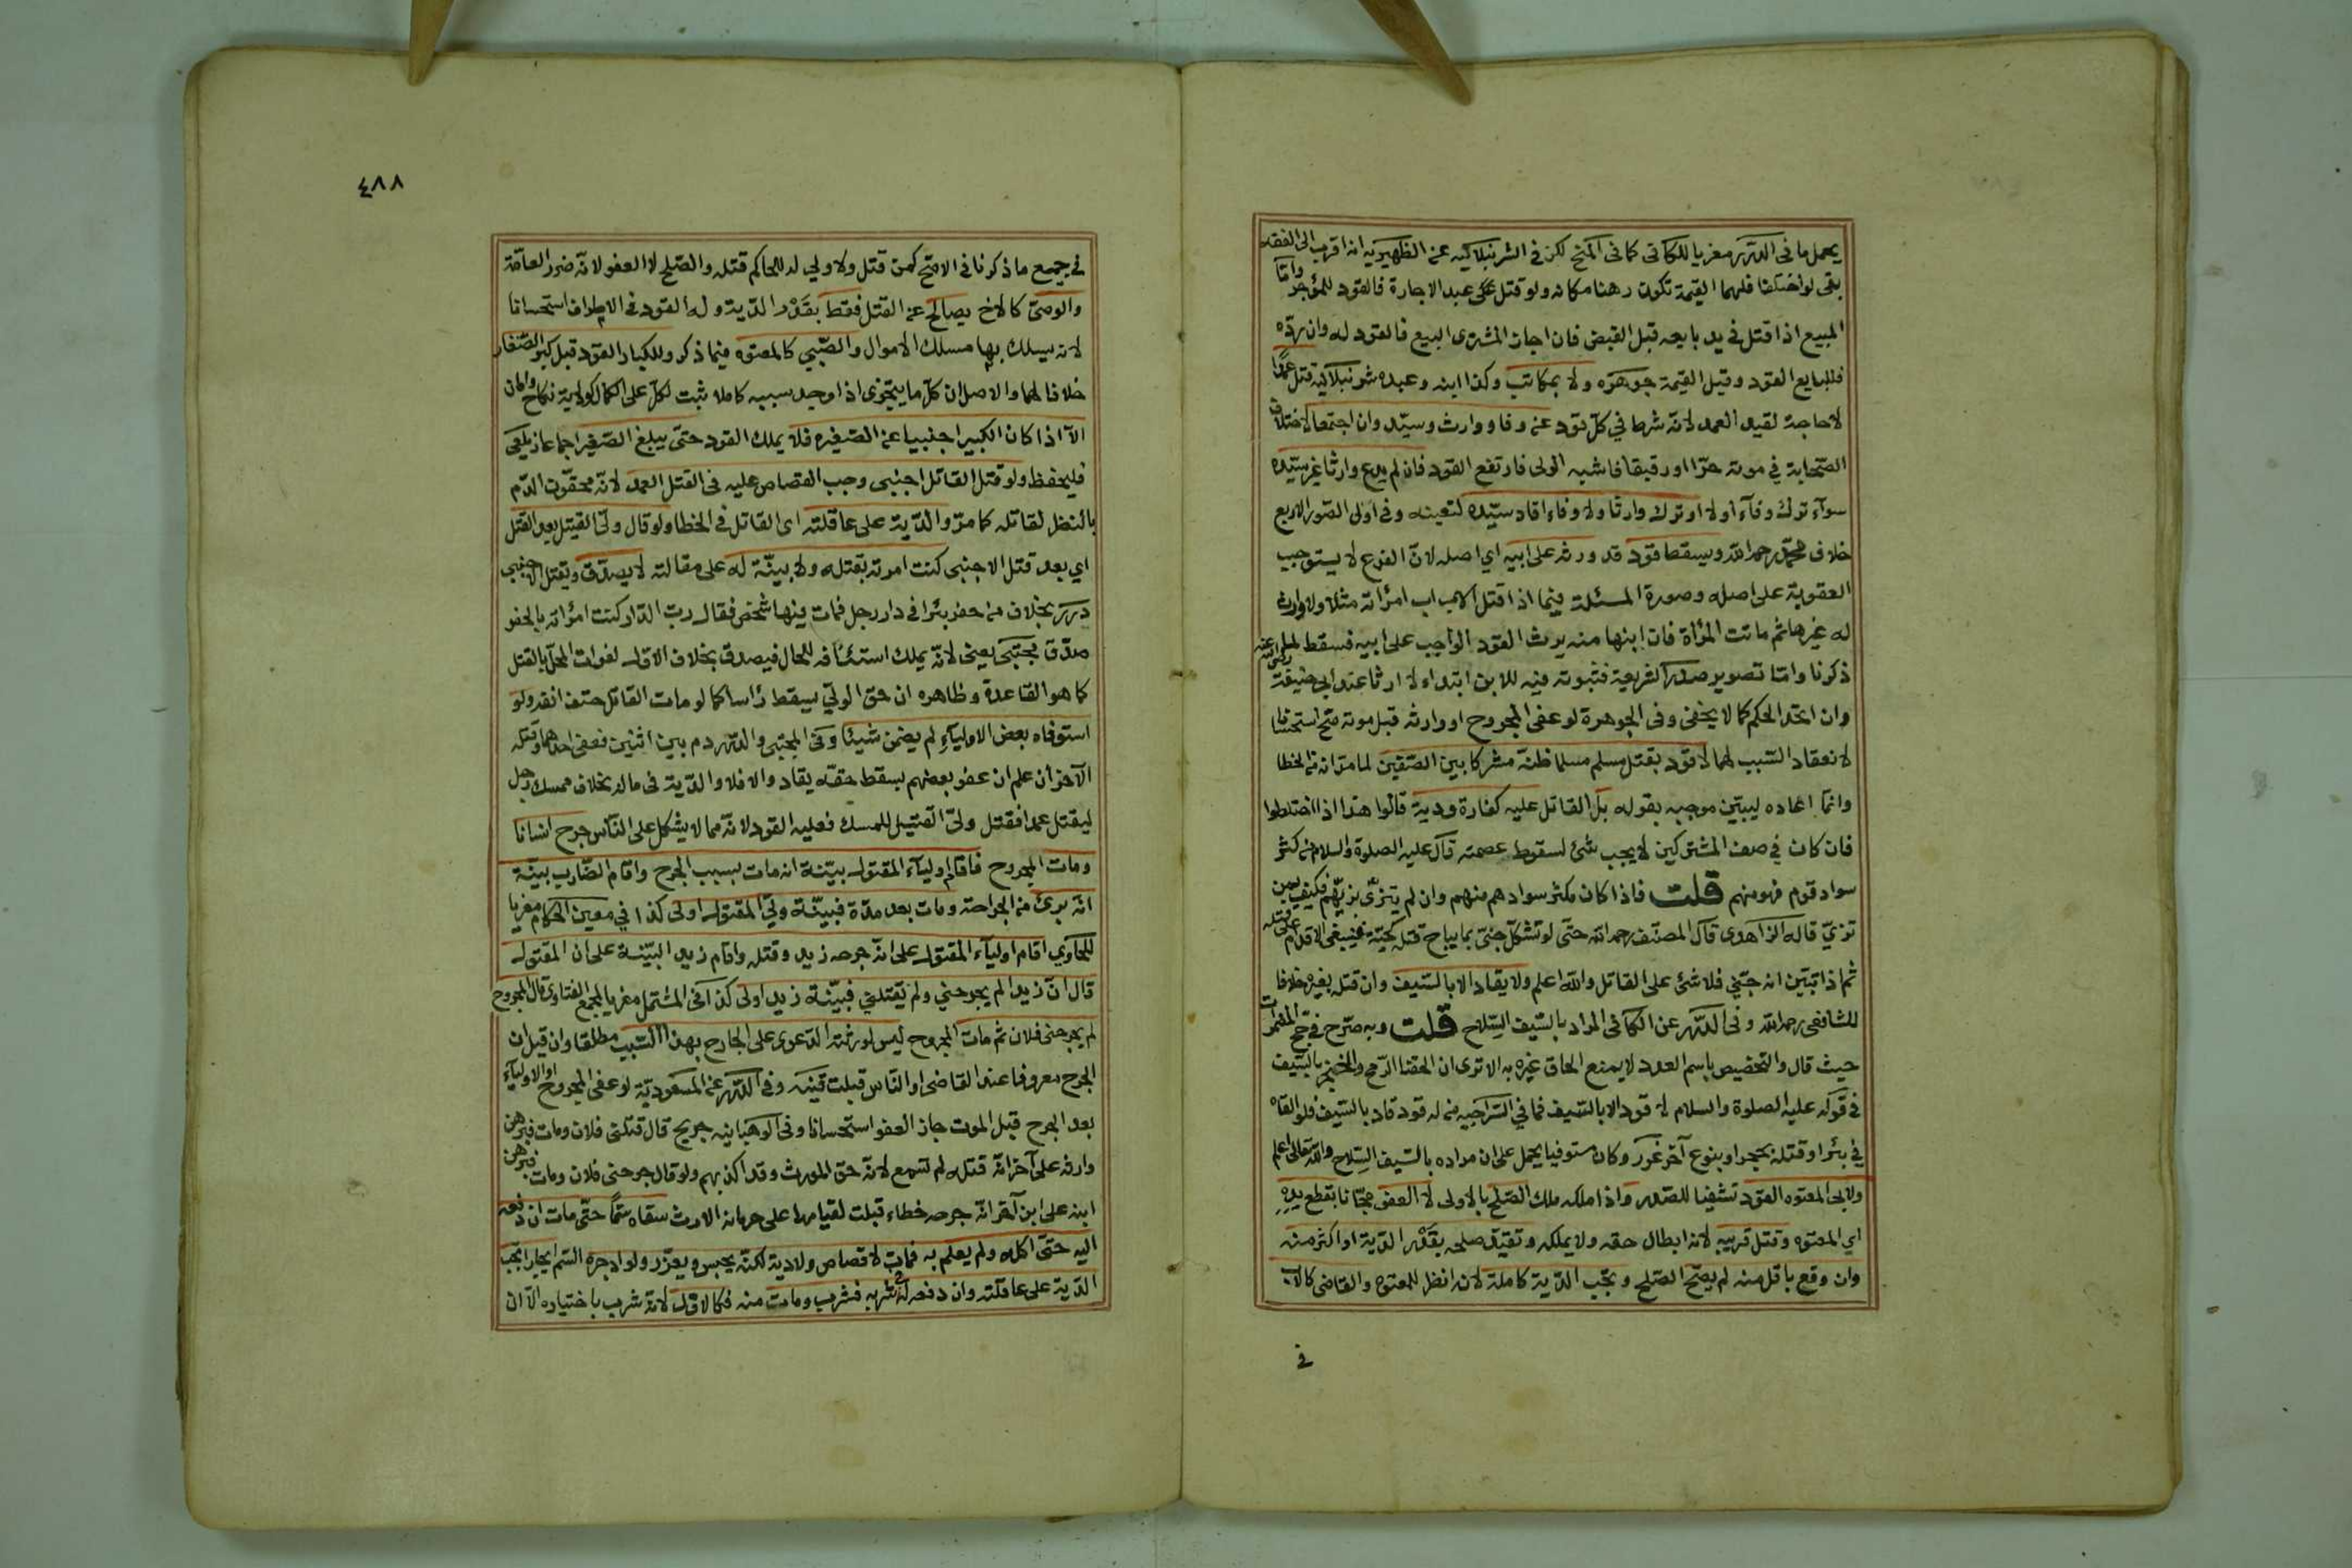 يحمل ما فى الدرر معزيا للكافى كما فى المنح لكن فى الشرنبلالية عن الظهيرية انه اقرب الى الفقه
بقى لو اختلفا فلهما القيمة تكون رهنا مكانه ولو قتل عبد الاجارة فالقود للمؤجر واما
المبيع اذا قتل فى يد بايعه قبل القبض فان اجاز المشترى البيع فالقود له وان رده
فللبايع القود وقيل القيمة جوهره ولا بمكاتب وكذا ابنه وعبده شرنبلالية قتل عمدًا
لا حاجة لقيد العمد لانه شرط في كل قود عن وفا ووارث وسيد وان اجتمعا لاختلاف
الصحابة في موته حرا اورقيقا فاشبه الولى فارتفع القود فان لم يدع وارثا غير سيده
سوآء ترك وفآء أولا او ترك وارثا ولا وفاء اقاد سيده لتعينه وفى اولى الصور الاربع
خلاف محمد رحمه الله ويسقط قود قد ورثه على ابيه اي اصله لان الفرع لا يستوجب
العقوبة على اصله وصورة المسئلة فيما اذا قتل الاب اب امرأته مثلا ولا وارث
له غيرها ثم ماتت المرأة فان ابنها منه يرث القود الواجب على ابيه فسقط لما
ذكرنا واما تصوير صدر الشريعة فثبوته فيه للابن ابتداء لا ارثا عند ابي حنيفة رضى الله عنه
وان اتحد الحكم كما لا يخفى وفى الجوهرة لو عفى المجروح او وارثه قبل موته صح استحسانا
لانعقاد السبب لهما لا قود بقتل مسلم مسلما ظنه مشركا بين الصفين لما مر انه من الخطا
وانما اعاده ليبين موجبه بقوله بل القاتل عليه كفارة ودية قالوا هذا اذا اختلطوا
فان كان في صف المشتركين لا يجب شئ لسقوط عصمته قال عليه الصلوة والسلام من كثر
سواد قوم فهو منهم قلت فاذا كان مكثر سوادهم منهم وان لم يتزى بزيهم فكيف بمن
تزيّ قاله الزاهدى قال المصنف رحمه الله حتى لو تشكل جنى بما يباح قتله كحية فينبغى الاقدام على قتله
ثم اذا تبين انه جنّي فلا شئ على القاتل والله اعلم ولا يقاد الا بالسيف وان قتله بغيره خلافا
للشافعى رحمه الله وفى الدرر عن الكافى المراد بالسيف السلاح قلت وبه صرح في حج المضمرات
حيث قال والتخصيص باسم العدد لا يمنع الحاق غيره به الا ترى ان الحقنا الرمح والخنجر بالسيف
فى قوله عليه الصلوة والسلام لا قود الا بالسيف فما في السراجيه من له قود قاد بالسيف فلو القاه
في بئر او قتله بحجر او بنوع آخر غرر وكان مستوفيا يحمل على ان مراده بالسيف السلاح والله تعالى اعلم
ولابى المعتوه القود تشفيا للصدر واذا ملكه ملك الصلح بالاولى لا العفو مجانا بقطع يده
اي المعتوه وقتل قريبه لانه ابطال حقه ولا يملكه وتقيد صلحه بقدر الدية او اكثر منه
وان وقع باقل منه لم يصح الصلح وتجب الدية كاملة لانه انظر للمعتوه والقاضى كالاب
فى
٤٨٨
في جميع ما ذكرنا فى الاصح كمن قتل ولا ولي له للحاكم قتله والصلح لا العفو لانه ضرر العامة
والوصى كالاخ يصالح عن القتل فقط بقدر الدية وله القود فى الاطراف استحسانا
لانه يسلك بها مسلك الاموال والصبي كالمعتوه فيما ذكر وللكبار القود قبل كبر الصغار
خلافا لهما والاصل ان كل ما يتجزى اذا وجد سببه كاملا ثبت لكل على الكمال كولاية نكاح وامان
الا اذا كان الكبير اجنبيا عن الصغير فلا يملك القود حتى يبلغ الصغير اجماعا زيلعى
فليحفظ ولو قتل القاتل اجنبى وجب القصاص عليه فى القتل العمد لانه محقون الدم
بالنظر لقاتله كما مر والدية على عاقلته اى القاتل في الخطا ولو قال ولى القتيل بعد القتل
اي بعد قتل الاجنبى كنت امرته بقتله ولا بينة له على مقالته لا يصدق ويقتل الاجنبى
درر بخلاف من حفر بئرا في دار رجل فمات فيها شخص فقال رب الدار كنت امرته بالحفر
صدق مجتبى يعنى لانه يملك استئنافه للحال فيصدق بخلاف الاول لفوات المحل بالقتل
كما هو القاعدة وظاهره ان حق الولي يسقط رأسا كما لو مات القاتل حتف انفه ولو
استوفاه بعض الاوليآء لم يضمن شيئا وفى المجتبى والدرر دم بين اثنين فعفى احدهما وقتله
الآخر ان علم ان عفو بعضهم يسقط حقه يقاد والا فلا والدية فى ماله بخلاف ممسك رجل
ليقتل عمدا فقتل ولىّ القتيل الممسك فعليه القود لانه مما لا يشكل على الناس جرح انسانا
ومات المجروح فاقام اوليآء المقتول بينة انه مات بسبب الجرح واقام الضارب بينة
انه برئ من الجراحة ومات بعد مدة فبينة ولي المقتول اولى كذا في معين الحكام معزيا
للحاوي اقام اوليآء المقتول على انه جرحه زيد وقتله واقام زيد البينة على ان المقتول
قال ان زيدا لم يجرحني ولم يقتلني فبينة زيد اولى كذا فى المشتمل معزيا لمجمع الفتاوى قال المجروح
لم يجرحنى فلان ثم مات المجروح ليس لورثته الدعوى على الجارح بهذا السبب مطلقا وان قيل ان
الجرح معروفا عند القاضى او الناس قبلت قنيه وفى الدرر عن المسعودية لو عفى المجروح او الاوليآء
بعد الجرح قبل الموت جاز العفو استحسانا وفى الوهبانيه جريح قال قتلنى فلان ومات فبرهن
وارثه على آخر انه قتله لم تسمع لانه حق المورث وقد اكذبهم ولو قال جرحنى فلان ومات فبرهن
ابنه على ابن آخر انه جرحه خطاء قبلت لقيامها على حرمانه الارث سقاه سمًّا حتى مات ان دفعه
اليه حتى اكله ولم يعلم به فمات لا قصاص ولا دية لكنه يحبس ويعزر ولو اوجره السم ايجارا تجب
الدية على عاقلته وان دفعه له فى شربه فشرب ومات منه فكالاول لانه شرب باختياره الا ان